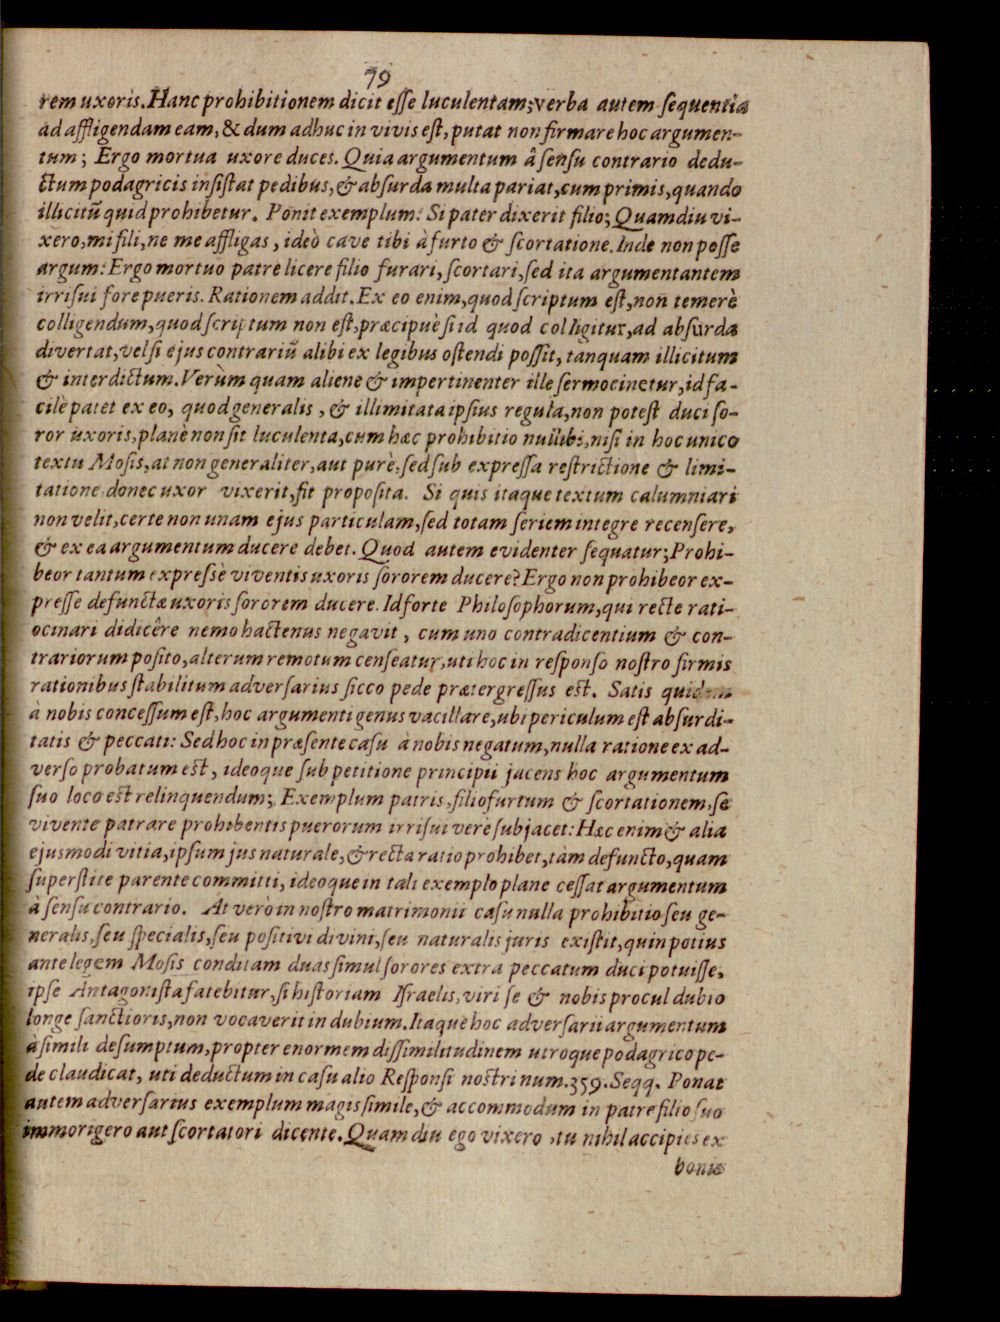 79
rem uxoris. Hanc prohibitionem dicit esse luculentam; verba autem sequentia
ad affligendam eam, & dum adhuc in vivis est, putat non firmare hoc argumen-
tum; Ergo mortua uxore duces. Quia argumentum â sensu contrario dedu-
ctum podagricis insistat pedibus, & absurda multa pariat, cum primis, quando
illicitũ quid prohibetur. Ponit exemplum: Si pater dixerit filio; Quamdiu vi-
xero, mi fili, ne me affligas, ideò cave tibi à furto & scortatione. Inde non posse
argum: Ergo mortuo patre licere filio furari, scortari, sed ita argumentantem
irrisui fore pueris. Rationem addit. Ex eo enim, quod scriptum est, non temerè
colligendum, quod scriptum non est, præcipuè si id quod colligitur, ad absurda
divertat, vel si ejus contrariũ alibi ex legibus ostendi possit, tanquam illicitum
& interdictum. Verùm quam aliene & impertinenter ille sermocinetur, id fa-
cilè patet ex eo, quod generalis, & illimitata ipsius regula, non potest duci so-
ror uxoris, planè non sit luculenta, cum hæc prohibitio nullibi, nisi in hoc unico
textu Mosis, at non generaliter, aut purè, sed sub expressa restrictione & limi-
tatione donec uxor vixerit, fit proposita. Si quis itaque textum calumniari
non velit, certe non unam ejus particulam, sed totam seriem integre recensere,
& ex ea argumentum ducere debet. Quod autem evidenter sequatur; Prohi-
beor tantum expressè viventis uxoris sororem ducere? Ergo non prohibeor ex-
presse defunctæ uxoris sororem ducere. Id forte Philosophorum, qui recte rati-
ocinari didicêre nemo hactenus negavit, cum uno contradicentium & con-
trariorum posito, alterum remotum censeatur, uti hoc in responso nostro firmis
rationibus stabilitum adversarius sicco pede prætergressus est. Satis quidem
à nobis concessum est, hoc argumenti genus vacillare, ubi periculum est absurdi-
tatis & peccati: Sed hoc in præsente casu à nobis negatum, nulla ratione ex ad-
verso probatum est, ideoque sub petitione principii jacens hoc argumentum
suo loco est relinquendum; Exemplum patris, filio furtum & scortationem, se
vivente patrare prohibentis puerorum irrisui verè subjacet: Hæc enim & alia
ejusmodi vitia, ipsum jus naturale, & recta ratio prohibet, tàm defuncto, quam
superstite parente committi, ideoque in tali exemplo plane cessat argumentum
à sensu contrario. At verò in nostro matrimonii casu nulla prohibitio seu ge-
neralis, seu specialis, seu positivi divini, seu naturalis juris existit, quin potius
ante legem Mosis conditam duas simul sorores extra peccatum duci potuisse,
ipse Antagonista fatebitur, si historiam Israelis, viri se & nobis procul dubio
longe sanctioris, non vocaverit in dubium. Itaque hoc adversarii argumentum
à simili desumptum, propter enormem dissimilitudinem utroque podagrico pe-
de claudicat, uti deductum in casu alio Responsi nostri num. 359. Seqq. Ponat
autem adversarius exemplum magis simile, & accommodum in patre filio suo
immorigero aut scortatori dicente. Quam diu ego vixero, tu nihil accipies ex
bonis